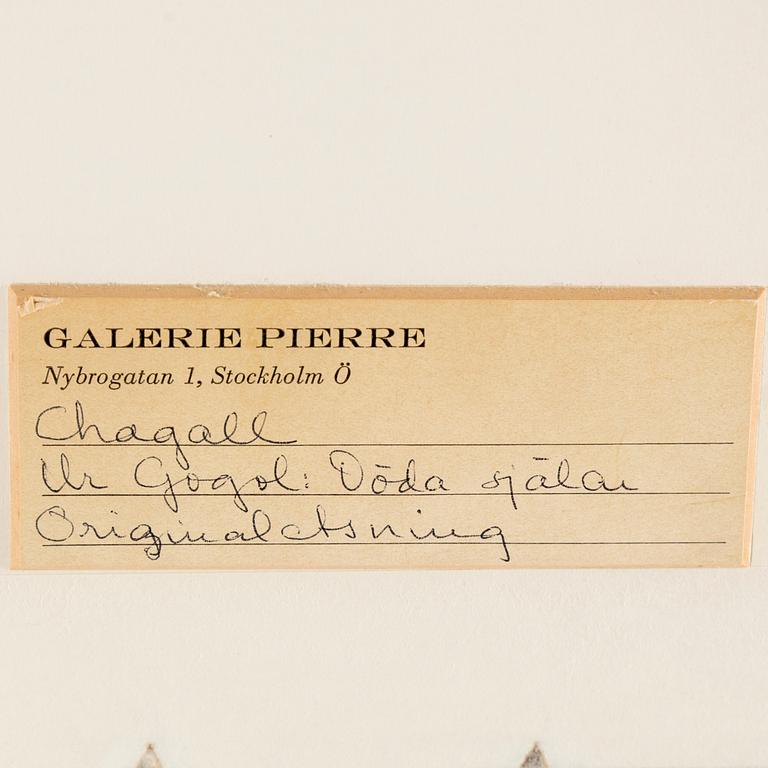 GALERIE PIERRE
Nybrogatan 1, Stockholm Ö
Chagall
Ur Gogol: Döda själar
Originaletsning